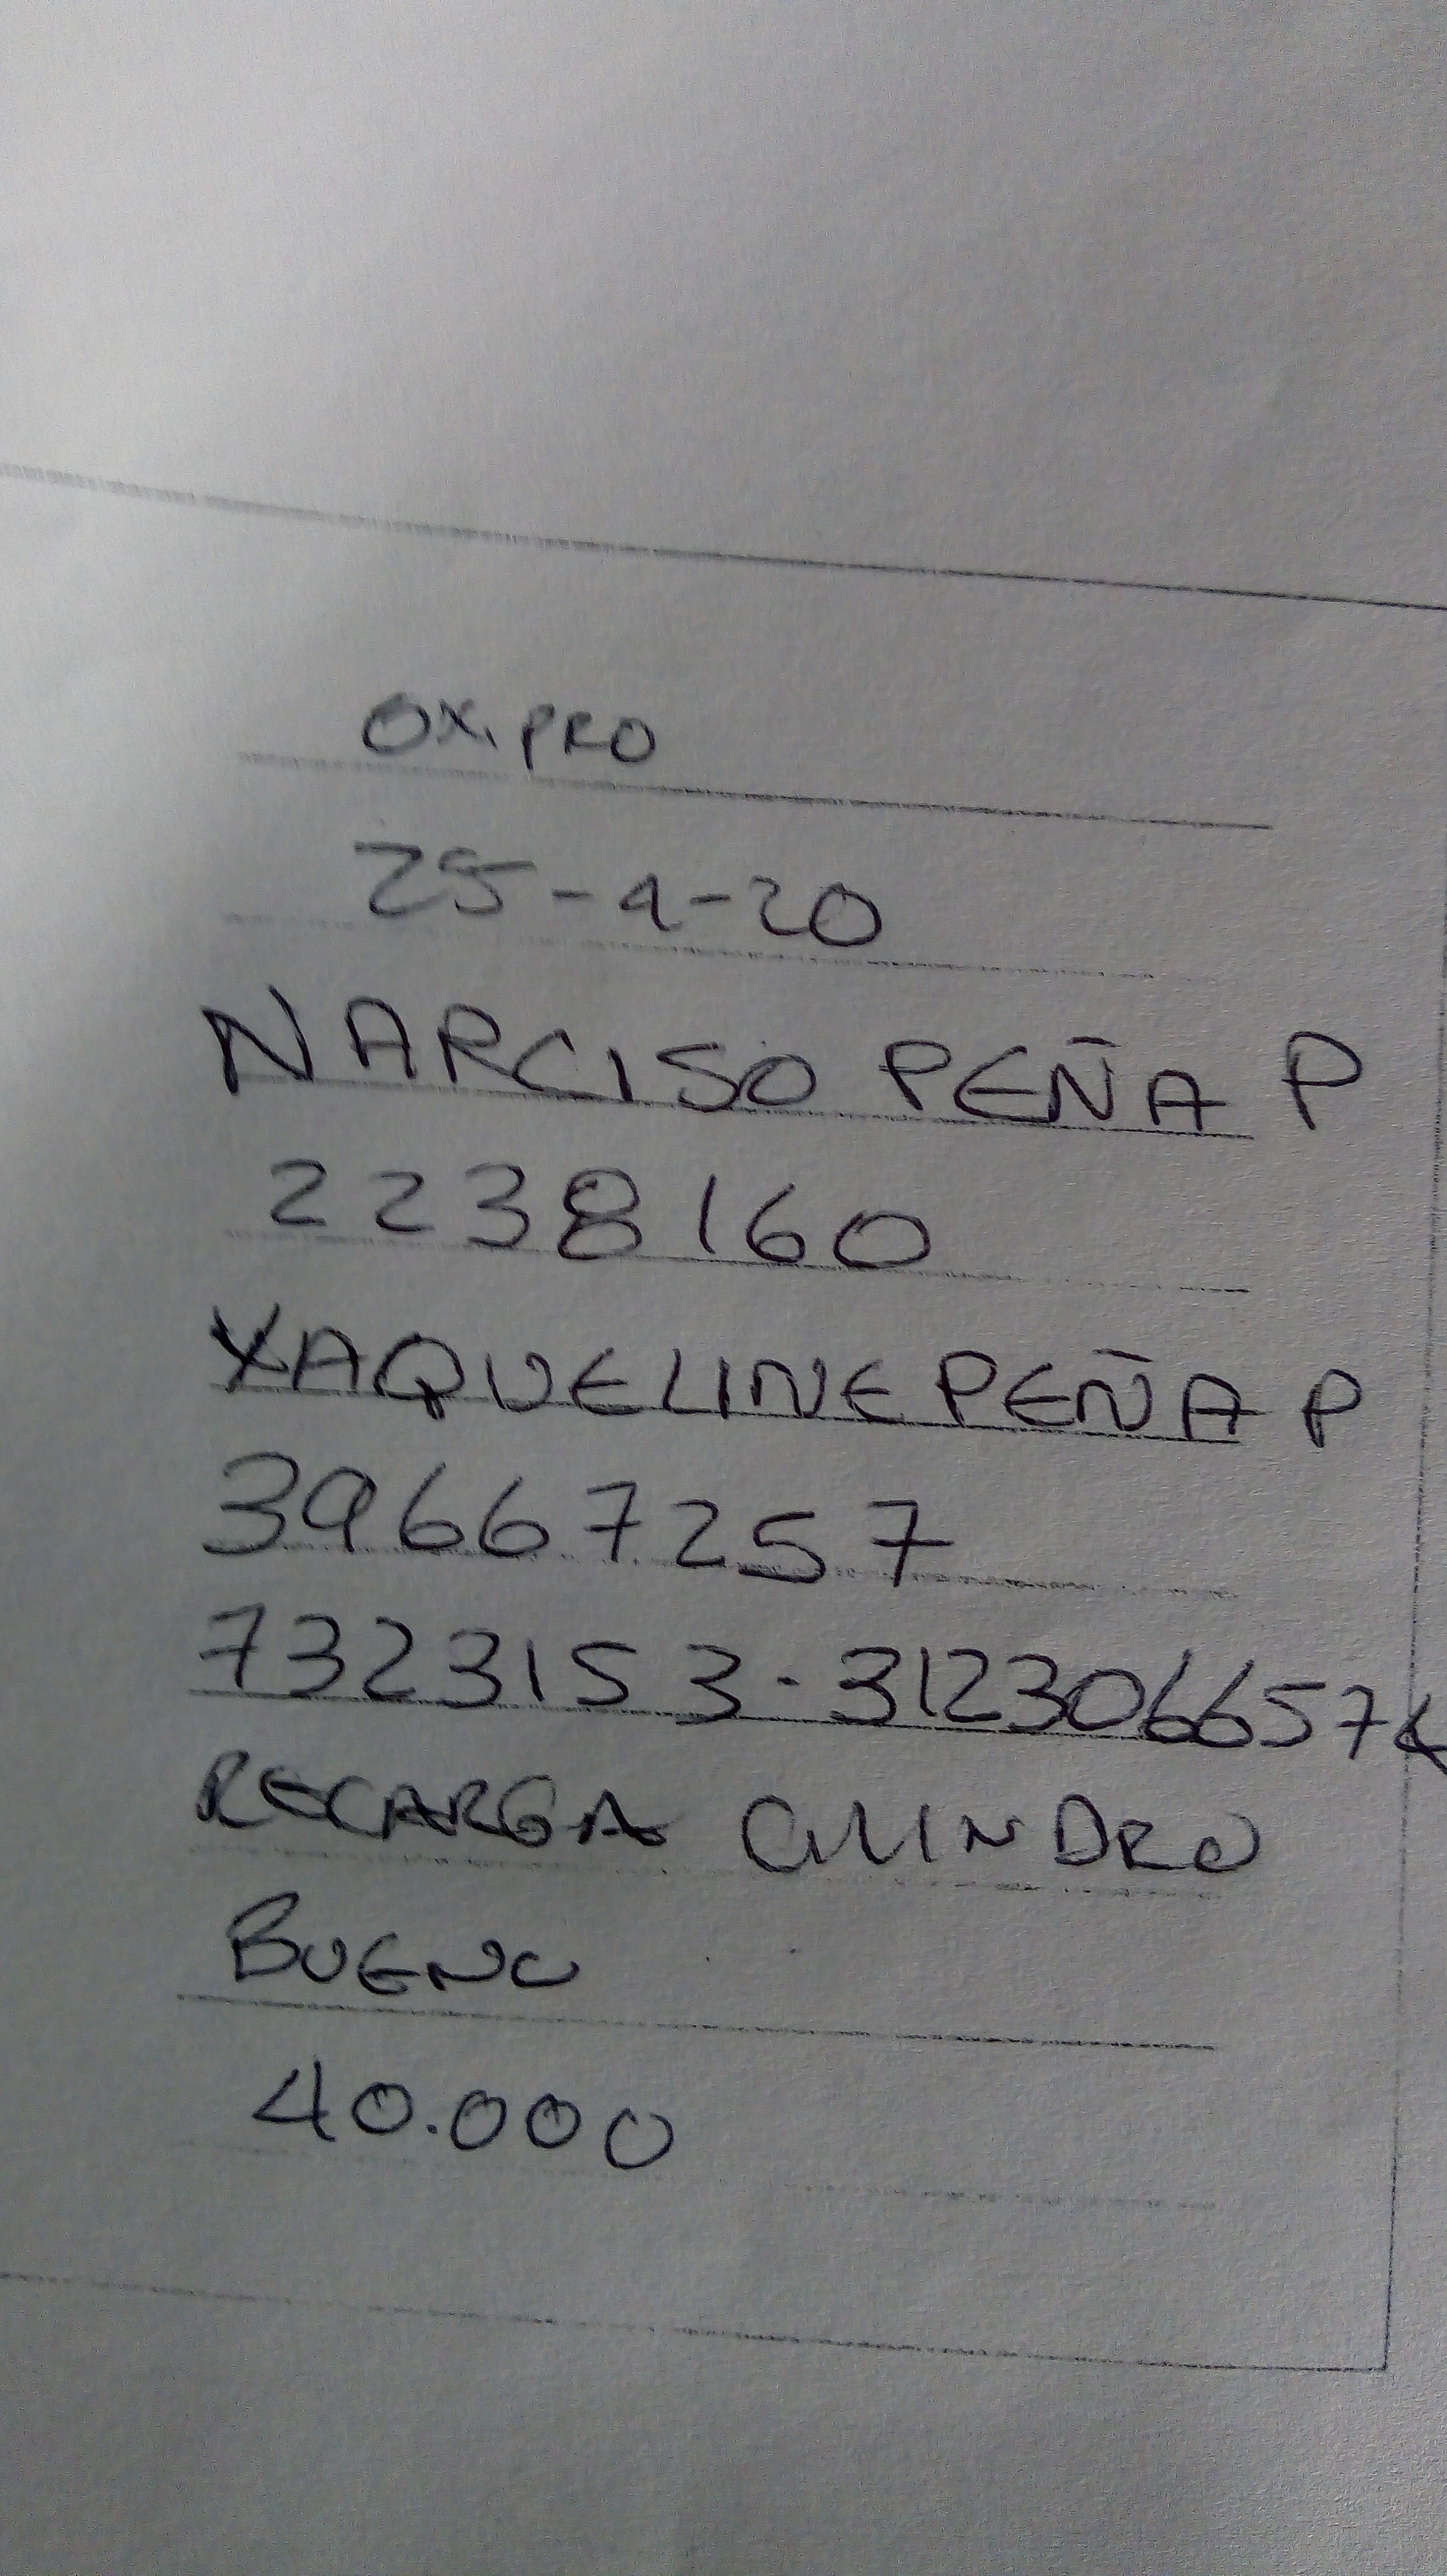 OXIPRO
25-4-20
NARCISO PEÑA P
2238160
YAQUELINE PEÑA P
39667257
7323153-3123066574
RECARGA CILINDRO
BUENO
40.000